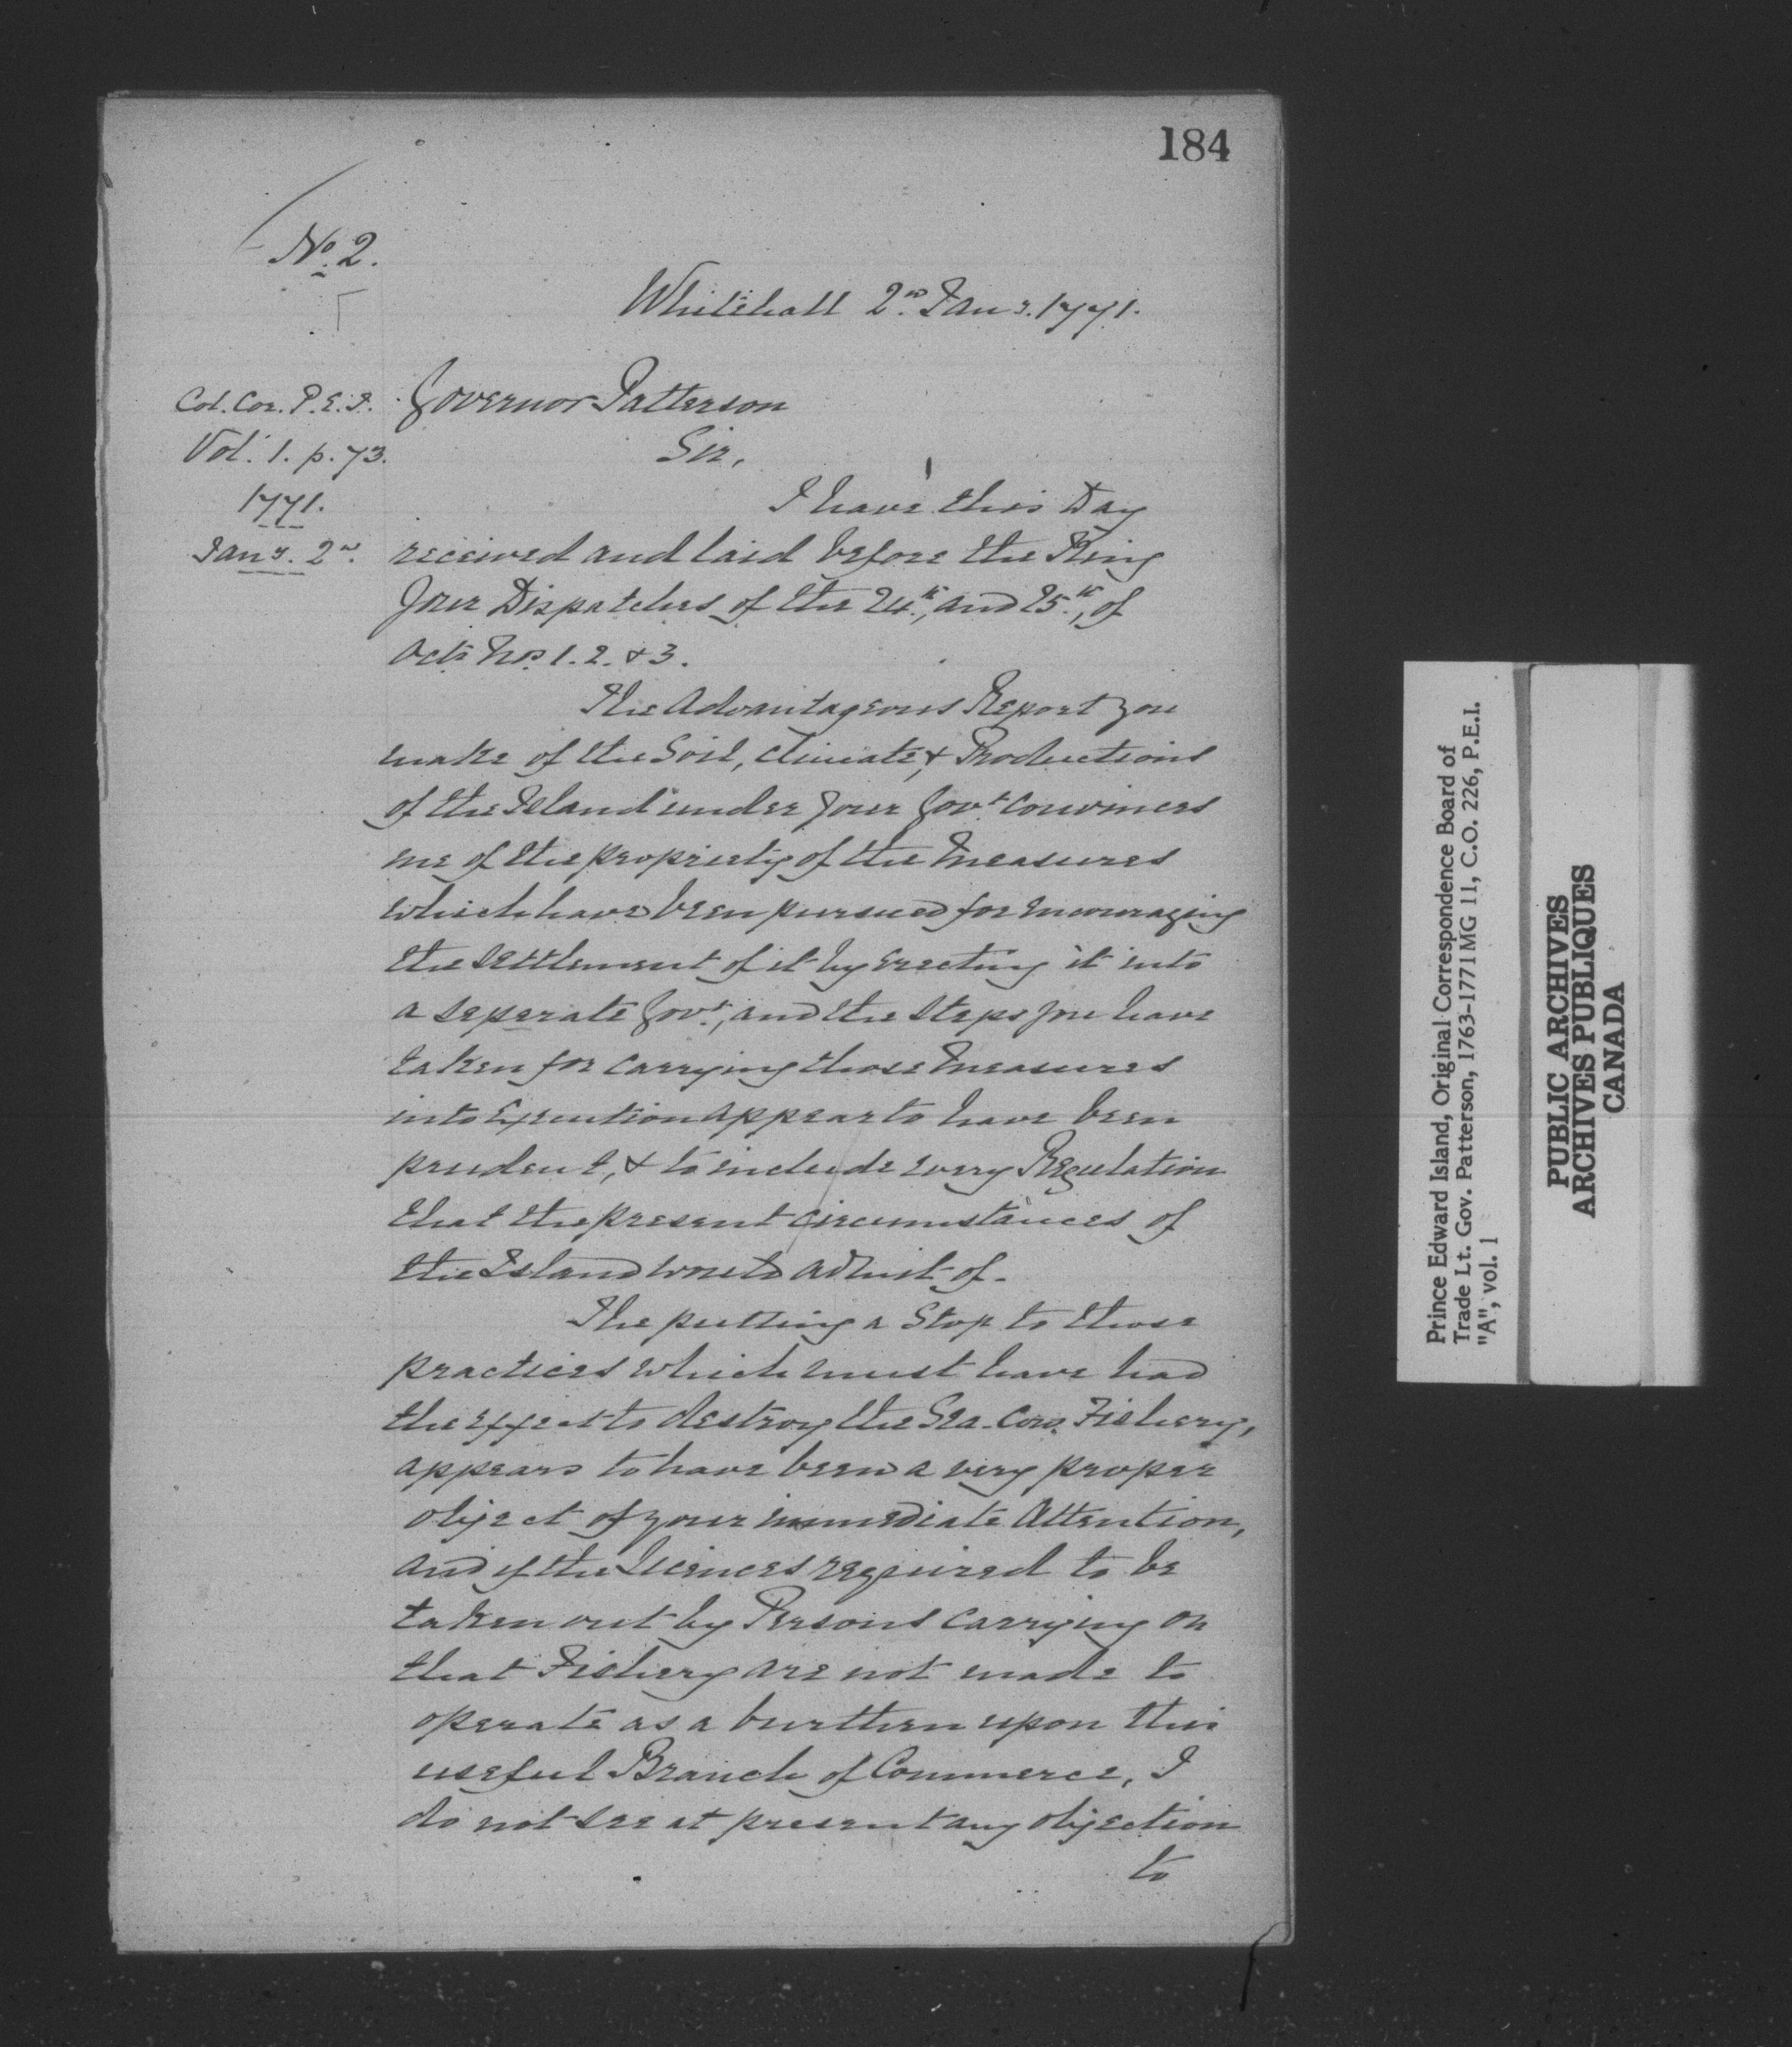 184
No. 2.
Whitehall 2nd Jany. 1771.
Col. Cor. P.E.I.
Vol. 1. p. 73.
1771.
Jany. 2nd.
Governor Patterson
Sir,
I have this Day
received and laid before the King
your Dispatches of the 24th, and 25th, of
Octr. Nos. 1. 2. & 3.
The Advantageous Report you
make of the Soil, Climate, & Productions
of the Island under your Govt. convinces
me of the propriety of the Measures
which have been pursued for encouraging
the settlement of it by erecting it into
a seperate Govt., and the steps you have
taken for carrying those Measures
into Execution appear to have been
prudent, & to include every Regulation
that the present circumstances of
the Island would admit of.
The putting a Stop to those
practices which must have had
the effect to destroy the Sea-Cow Fishery,
appears to have been a very proper
object of your immediate Attention,
and if the Licences required to be
taken out by Persons carrying on
that Fishery are not made to
operate as a burthen upon this
useful Branch of Commerce, I
do not see at present any objection
to
Prince Edward Island, Original Correspondence Board of
Trade Lt. Gov. Patterson, 1763-1771 MG 11, C.O. 226, P.E.I.
"A", vol. 1
PUBLIC ARCHIVES
ARCHIVES PUBLIQUES
CANADA